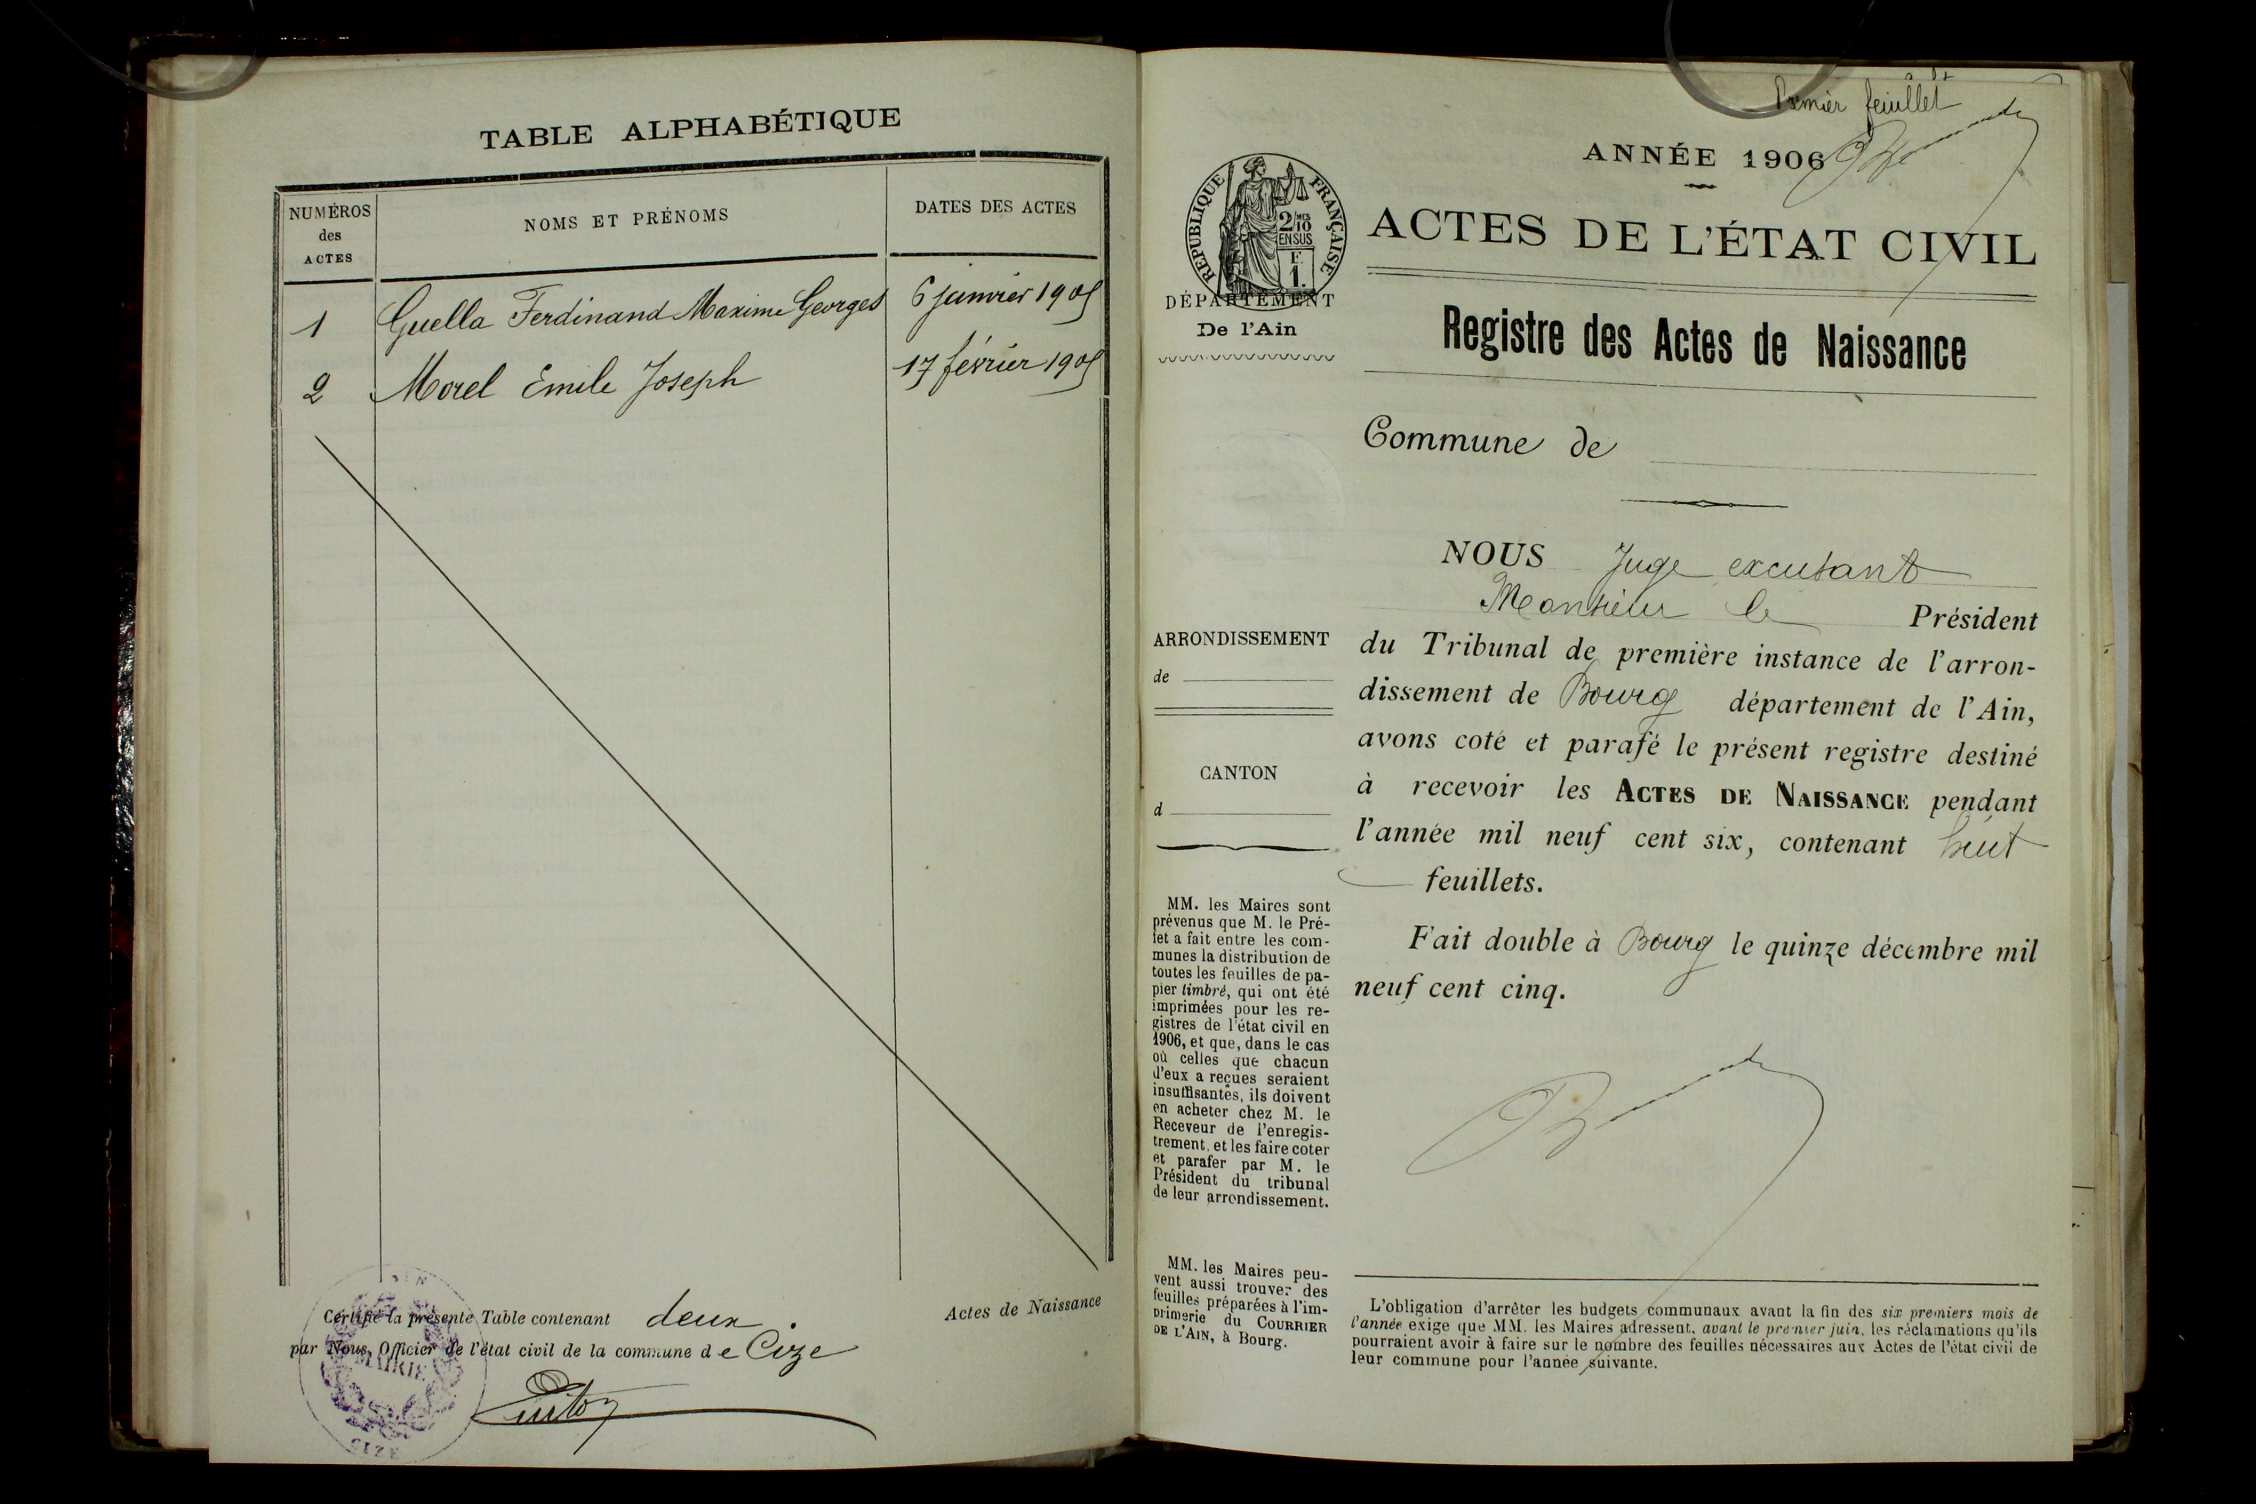 TABLE ALPHABÉTIQUE
NUMÉROS
des
ACTES
NOMS ET PRÉNOMS
DATES DES ACTES
1 Guella Ferdinand Maxime Georges 6 janvier 1905
2 Morel Emile Joseph 17 février 1905
Certifié la présente Table contenant deux Actes de Naissance
par Nous, Officier de l'état civil de la commune de Cize
MAIRIE
CIZE
Premier feuillet
ANNÉE 1906
RÉPUBLIQUE FRANÇAISE
2/10
EN SUS
F.
1.
DÉPARTEMENT
De l'Ain
ACTES DE L'ÉTAT CIVIL
Registre des Actes de Naissance
Commune de
ARRONDISSEMENT
de
CANTON
d
MM. les Maires sont
prévenus que M. le Pré-
fet a fait entre les com-
munes la distribution de
toutes les feuilles de pa-
pier timbré, qui ont été
imprimées pour les re-
gistres de l'état civil en
1906, et que, dans le cas
où celles que chacun
d'eux a reçues seraient
insuffisantes, ils doivent
en acheter chez M. le
Receveur de l'enregis-
trement, et les faire coter
et parafer par M. le
Président du tribunal
de leur arrondissement.
MM. les Maires peu-
vent aussi trouver des
feuilles préparées à l'im-
primerie du COURRIER
DE L'AIN, à Bourg.
NOUS Juge excusant
Monsieur le Président
du Tribunal de première instance de l'arron-
dissement de Bourg département de l'Ain,
avons coté et parafé le présent registre destiné
à recevoir les ACTES DE NAISSANCE pendant
l'année mil neuf cent six, contenant huit
feuillets.
Fait double à Bourg le quinze décembre mil
neuf cent cinq.
L'obligation d'arrêter les budgets communaux avant la fin des six premiers mois de
l'année exige que MM. les Maires adressent, avant le premier juin, les réclamations qu'ils
pourraient avoir à faire sur le nombre des feuilles nécessaires aux Actes de l'état civil de
leur commune pour l'année suivante.